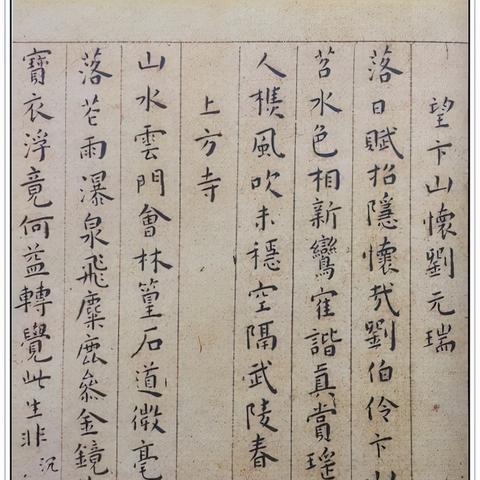 望卞山懷劉元瑞
落日賦招隱懷哉劉伯伶卞山
苕水色相新鸞隺諧真賞瑶
人樵風吹未穩空隔武陵春
上方寺
山水雲門會林篁石道微毫
落芲雨瀑泉飛麋鹿叅金鏡
寶衣浮竟何益轉覺此生非沉